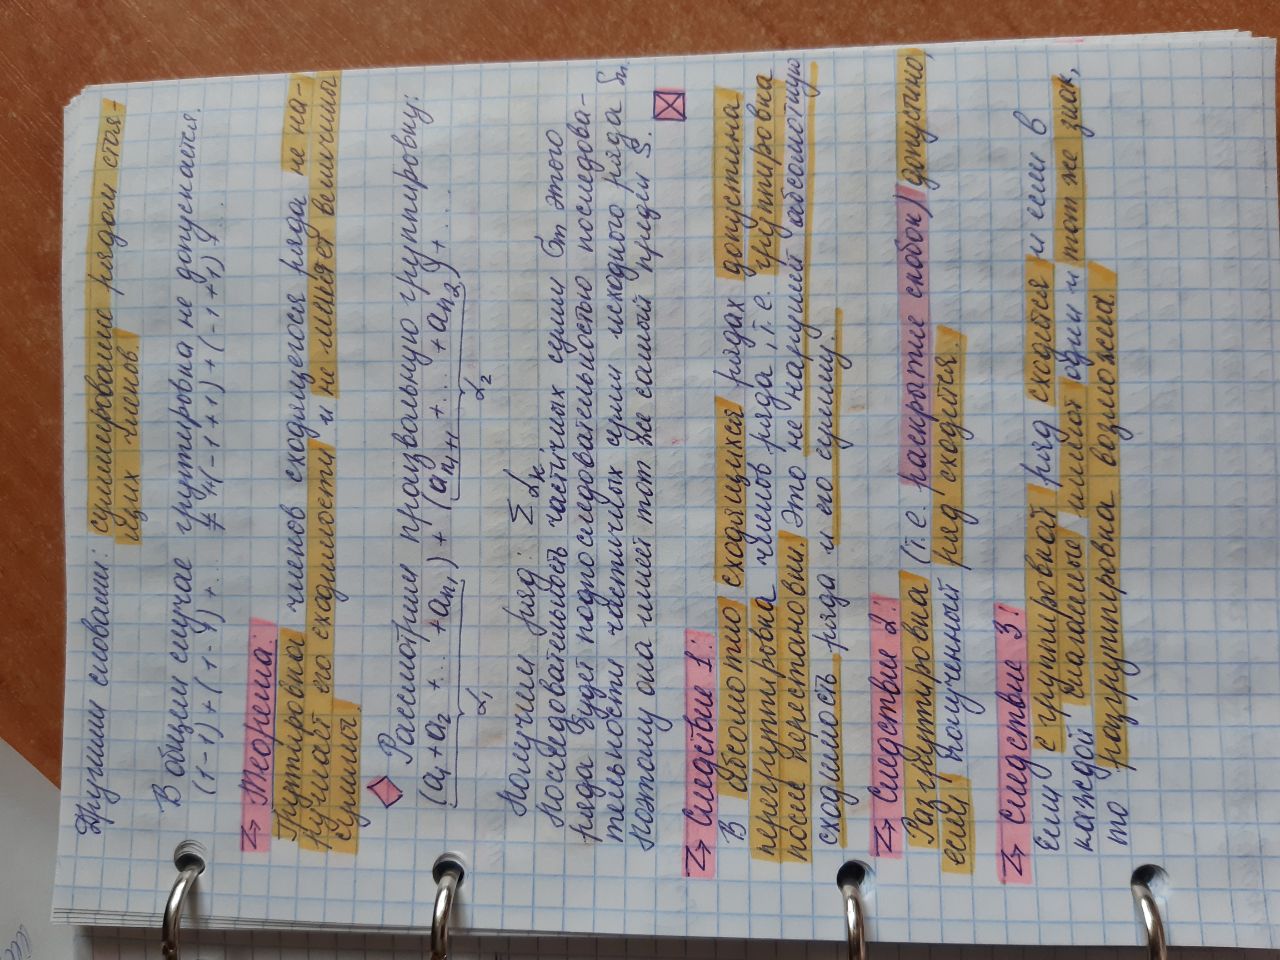 Другими словами: суммирование рядом стоя-
щих членов.
В общем случае группировка не допускается.
(1-1)+(1-1)+... ≠ 1+(-1+1)+(-1+1)+...
Теорема:
Группировка членов сходящегося ряда не на-
рушает его сходимости и не меняет величины
суммы.
Рассмотрим произвольную группировку:
(a₁+a₂+...+aₙ₁) + (aₙ₁₊₁+...+aₙ₂)+...
α₁ α₂
Получим ряд: Σαₖ.
Последовательность частичных сумм σₘ этого
ряда будет подпоследовательностью последова-
тельности частичных сумм исходного ряда Sₙ.
Поэтому она имеет тот же самый предел S.
Следствие 1:
В абсолютно сходящихся рядах допустима
перегруппировка членов ряда, т.е. группировка
после перестановки. Это не нарушит абсолютную
сходимость ряда и его сумму.
Следствие 2:
Разгруппировка (т.е. раскрытие скобок) допустимо,
если полученный ряд сходится.
Следствие 3:
Если с группировкой ряд сходится и если в
каждой слагаемые имеют один и тот же знак,
то разгруппировка возможна.